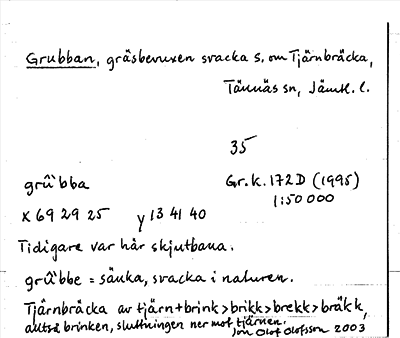 Grubban, gräsbevuxen svacka s. om Tjärnbräcka,
Tännäs sn, Jämtl. l.
35
grû`bba
Gr.k. 172D (1995)
1:50 000
x 69 29 25 y 13 41 40
Tidigare var här skjutbana.
grû`bbe = sänka, svacka i naturen.
Tjärnbräcka av tjärn+brink>brikk>brekk>bräkk,
alltså brinken, sluttningen ner mot tjärnen.
Jon Olof Olofsson 2003